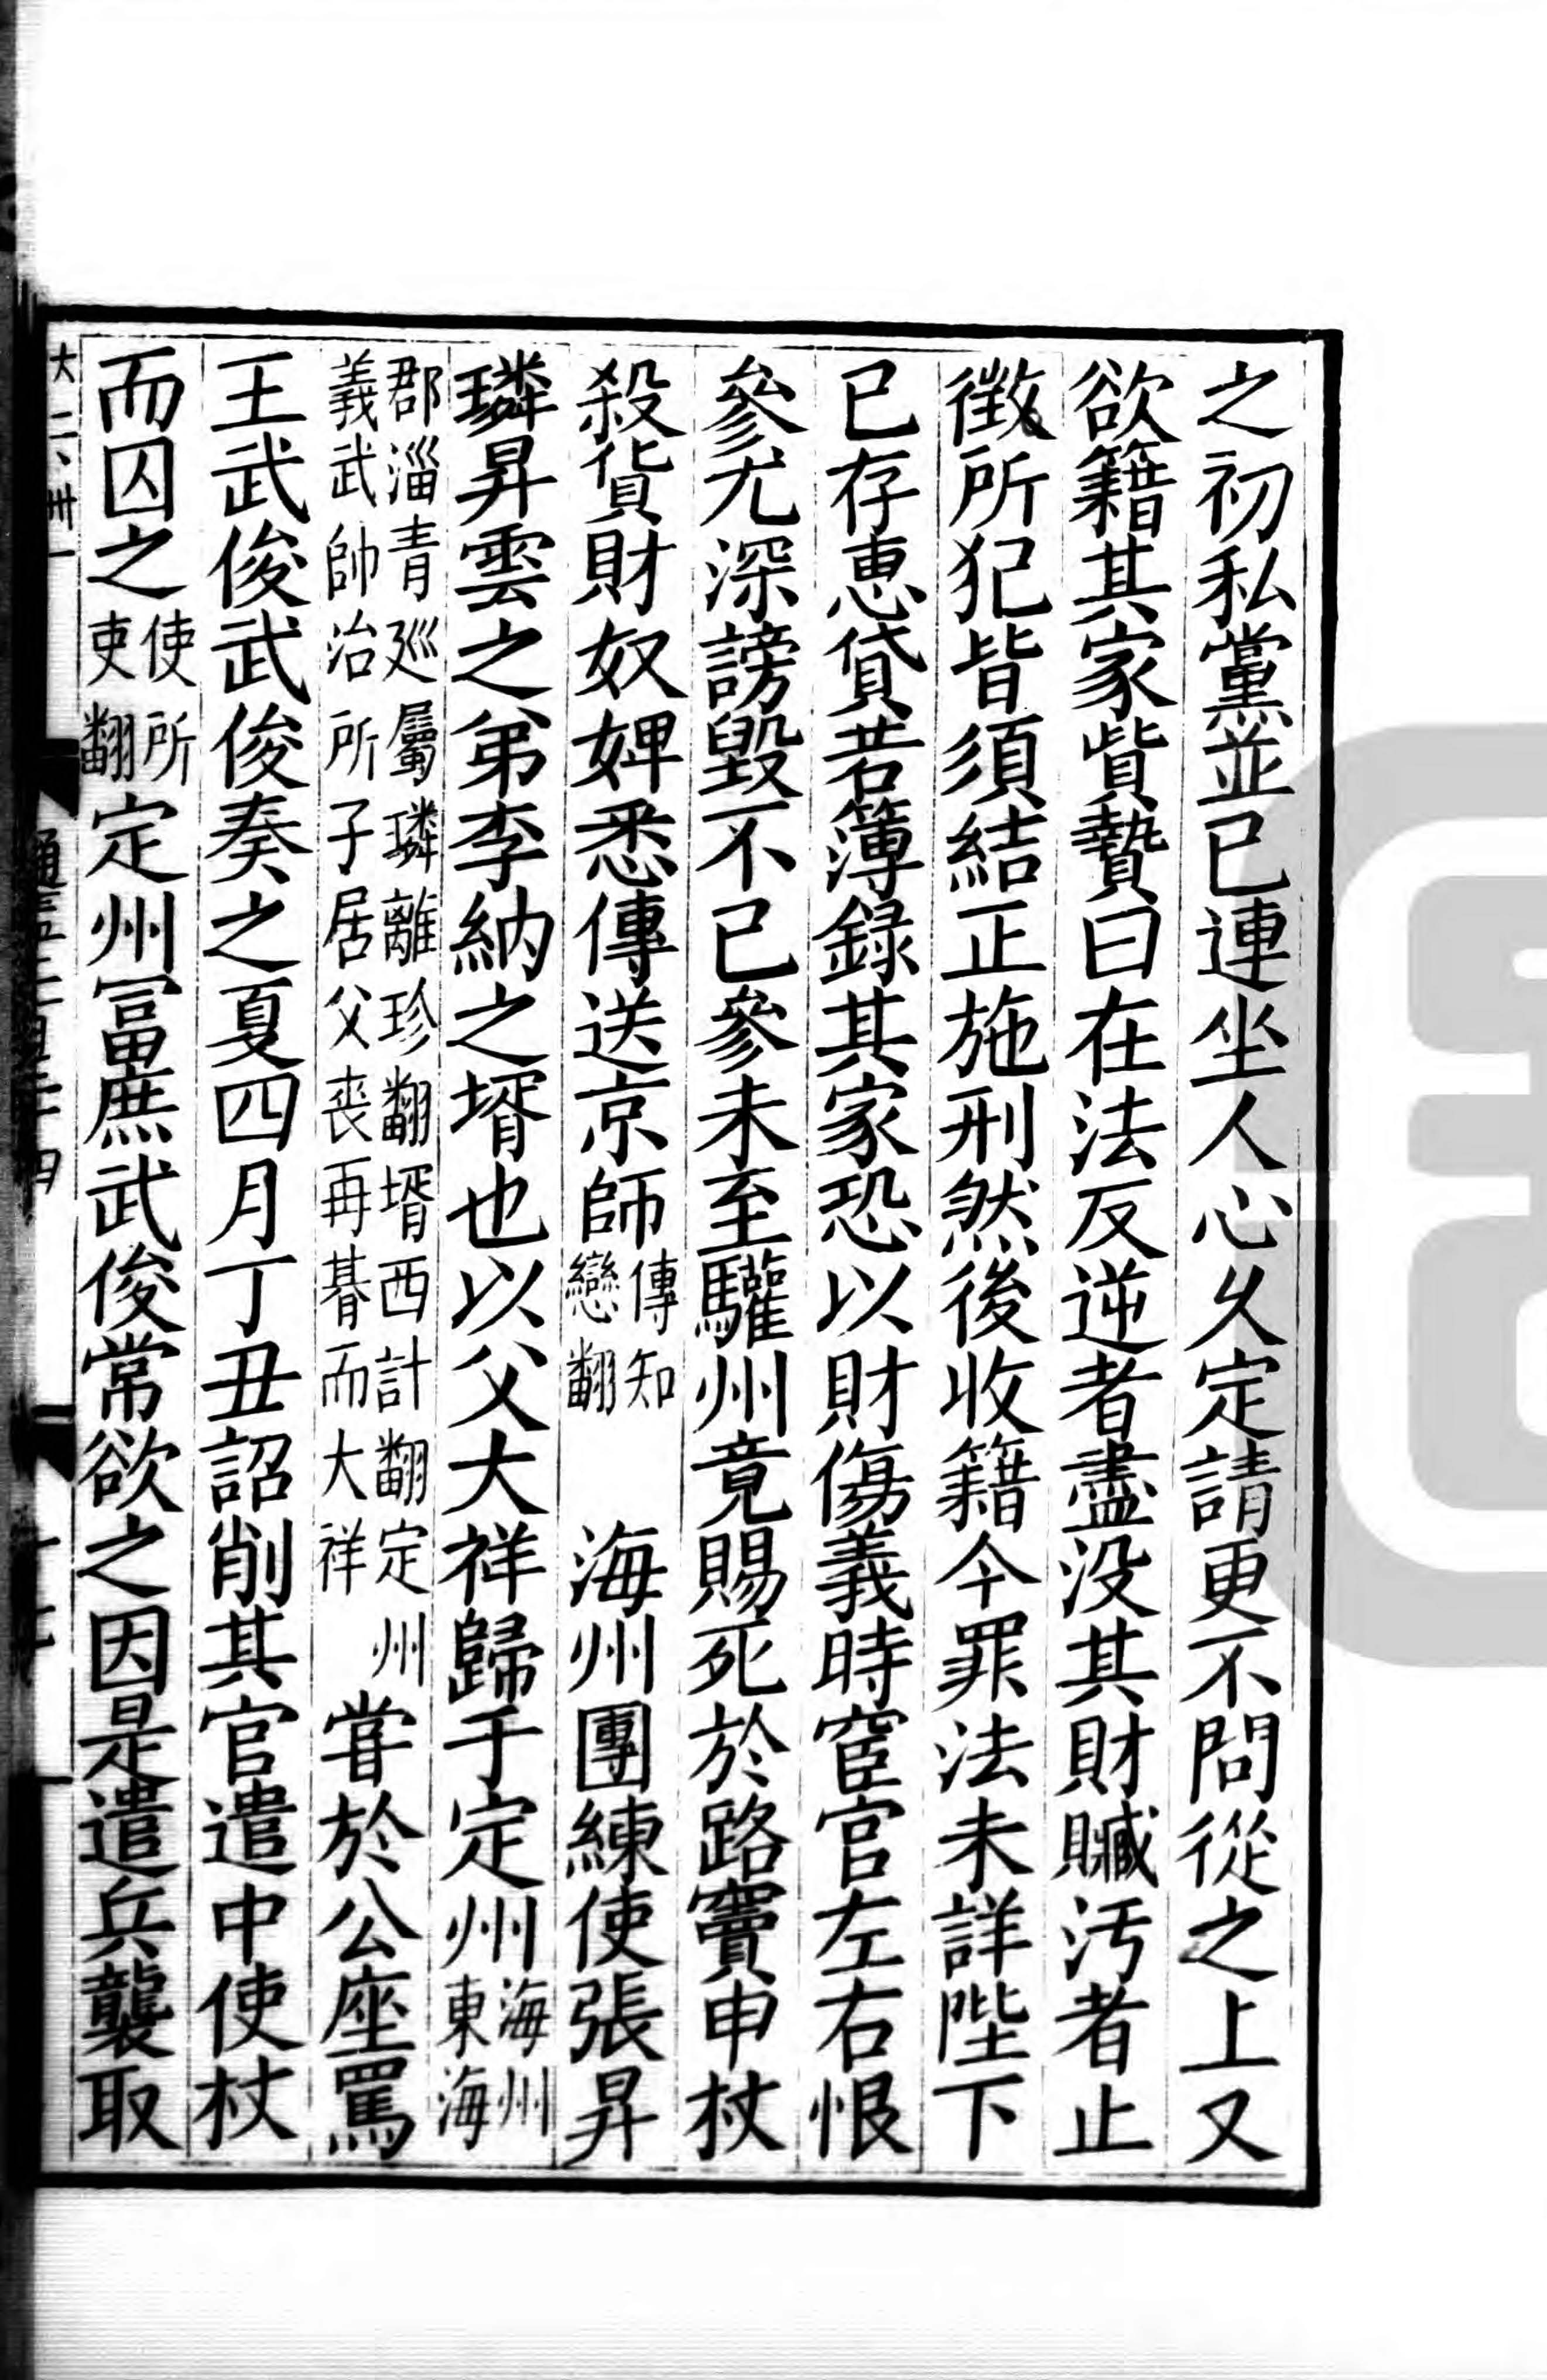 之初私黨並已連坐人心久定請更不問從之上又
欲籍其家貲贄曰在法反逆者盡没其財贓汚者止
徵所犯皆須結正施刑然後收籍今罪法未詳陛下
已存恵貸若簿錄其家恐以財傷義時宦官左右恨
參尤深謗毀不已參未至驩州竟賜死於路竇申杖
殺貨財奴婢悉傳送京師傳知戀翻 海州團練使張昇
璘昇雲之弟李納之壻也以父大祥歸于定州海州東海
郡淄青廵屬璘離珍翻壻西計翻定州義武帥治所子居父喪再朞而大祥 甞於公座罵
王武俊武俊奏之夏四月丁丑詔削其官遣中使杖
而囚之使所吏翻定州冨庶武俊常欲之因是遣兵襲取
大二、卅一